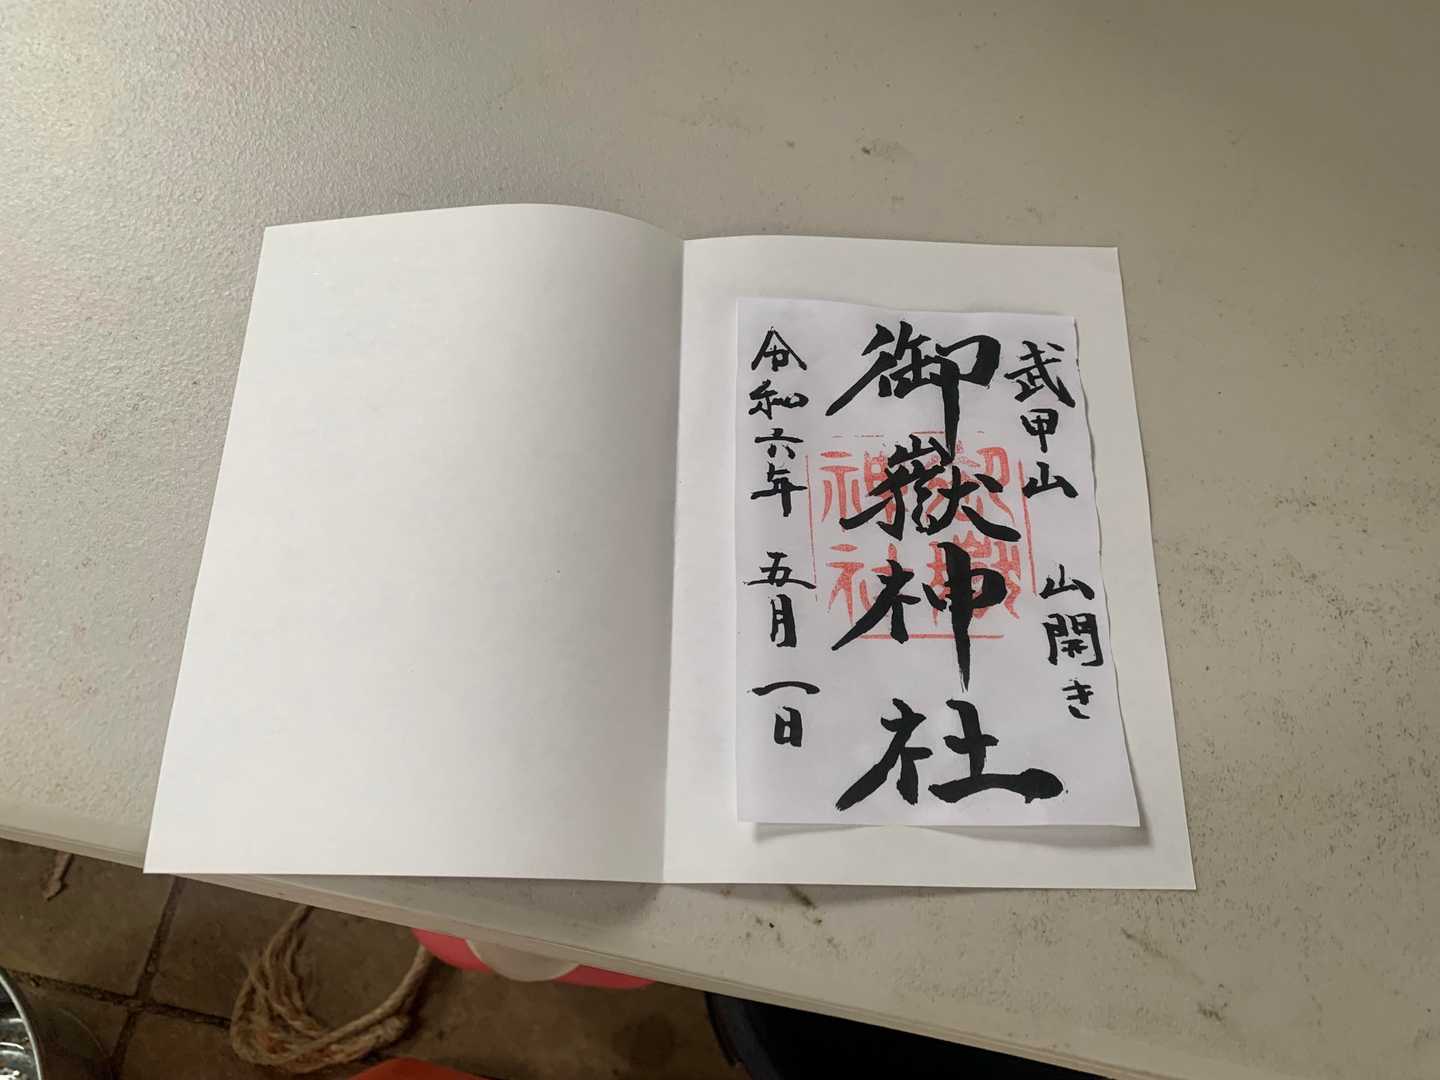 武甲山 山開き
御嶽神社
令和六年 五月一日
御嶽
神社